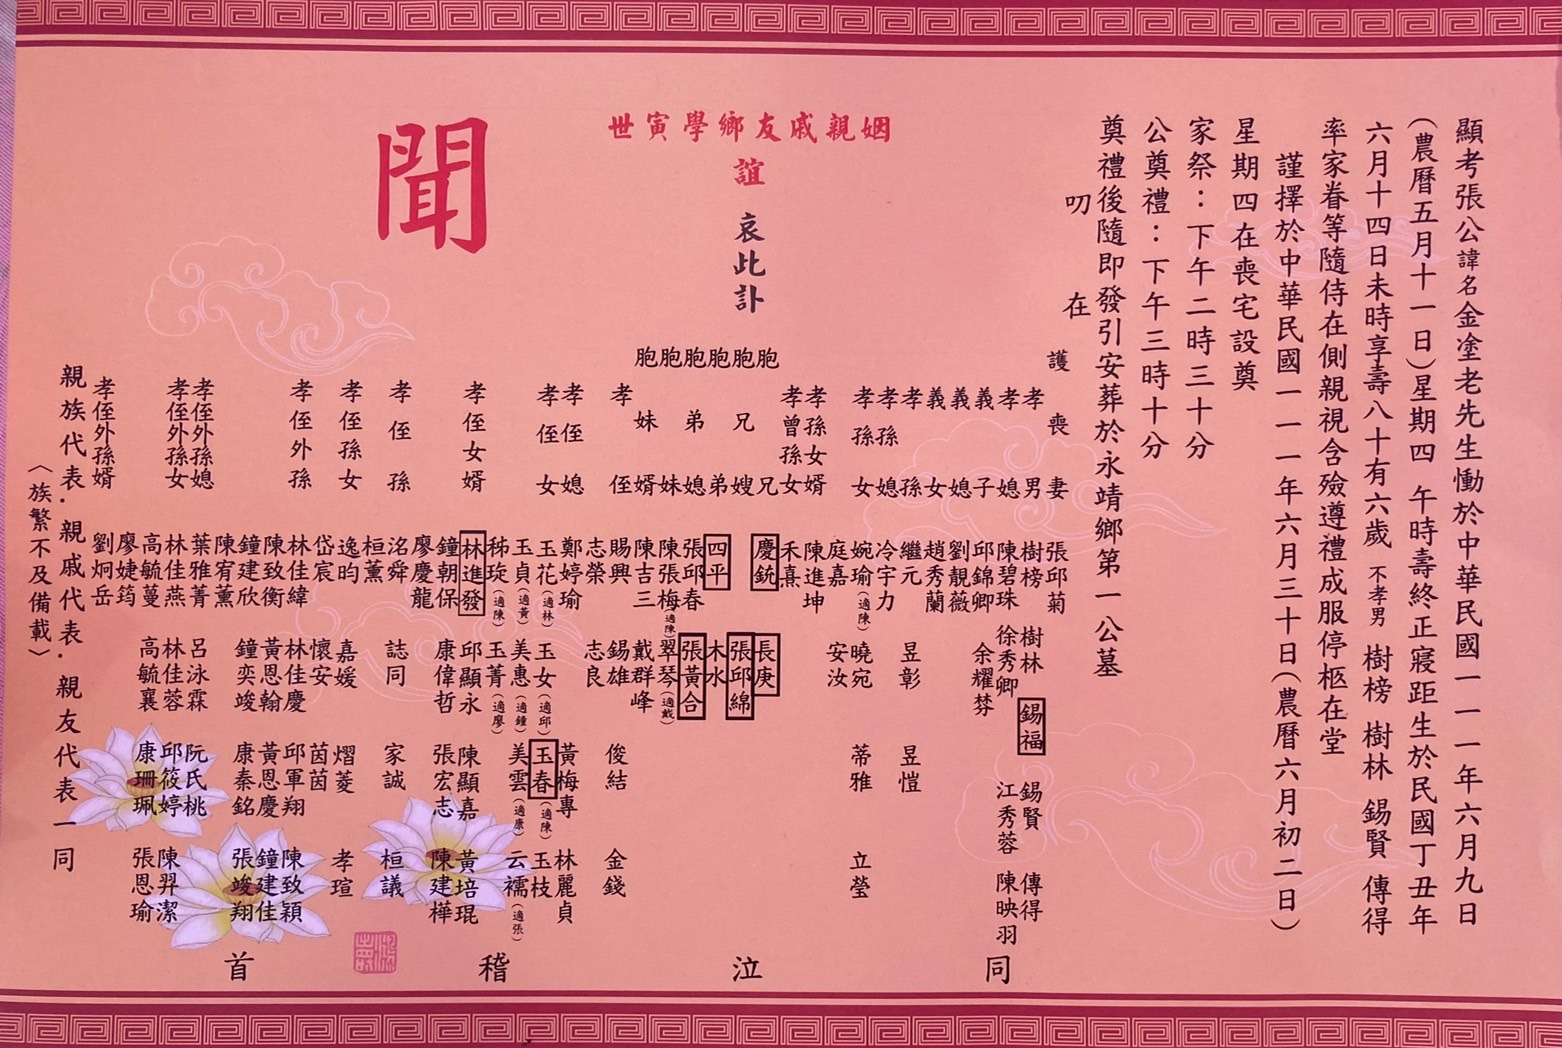 顯考張公諱名金塗老先生慟於中華民國一一一年六月九日
(農曆五月十一日)星期四 午時壽終正寢距生於民國丁丑年
六月十四日未時享壽八十有六歲 不孝男 樹榜 樹林 錫賢 傳得
率家眷等隨侍在側親視含殮遵禮成服停柩在堂
謹擇於中華民國一一一年六月三十日(農曆六月初二日)
星期四在喪宅設奠
家祭：下午二時三十分
公奠禮：下午三時十分
奠禮後隨即發引安葬於永靖鄉第一公墓
叨 在
姻親戚友鄉學寅世
誼
哀此訃
聞
護喪妻 張邱菊
孝男 樹榜 樹林 錫福 錫賢 傳得
孝媳 陳碧珠 徐秀卿 江秀蓉 陳映羽
義子 邱錦卿 余耀棼
義媳 劉靚薇
義女 趙秀蘭
孝孫 繼元 昱彰 昱愷
孝孫媳 冷宇力
孝孫女 婉瑜(適陳) 曉宛 蒂雅 立瑩
庭嘉 安汝
孝孫女婿 陳進坤
孝曾孫女 禾熹
胞兄 慶銃 長庚
胞兄嫂 張邱綿
胞弟 四平 木水
胞弟媳 張邱春 張黃合
胞妹 陳張梅(適陳) 翠琴(適戴)
胞妹婿 陳吉三 戴群峰
孝侄 賜興 錫雄 俊結 金錢
志榮 志良
孝侄媳 鄭婷瑜 黃梅專 林麗貞
孝侄女 玉花(適林) 玉女(適邱) 玉春(適陳) 玉枝
玉貞(適黃) 美惠(適鐘) 美雲(適康) 云襦(適張)
秭琁(適陳) 玉菁(適廖)
孝侄女婿 林進發 邱顯永 陳顯嘉 黃培琨
鐘朝保 康偉哲 張宏志 陳建樺
廖慶龍
孝侄孫 洺舜 誌同 家誠 桓議
桓薰
孝侄孫女 逸昀 嘉媛 熠菱 孝瑄
岱宸 懷安 茵茵
孝侄外孫 林佳緯 林佳慶 邱軍翔 陳致穎
陳致衡 黃恩翰 黃恩慶 鐘建佳
鐘建欣 鐘奕竣 康秦銘 張竣翔
陳宥薰
孝侄外孫媳 葉雅菁 呂泳霖 阮氏桃
孝侄外孫女 林佳燕 林佳蓉 邱筱婷 陳羿潔
高毓蔓 高毓襄 康珊珮 張恩瑜
廖婕筠
孝侄外孫婿 劉炯岳
親族代表．親戚代表．親友代表一同
〈族繁不及備載〉
同泣稽首